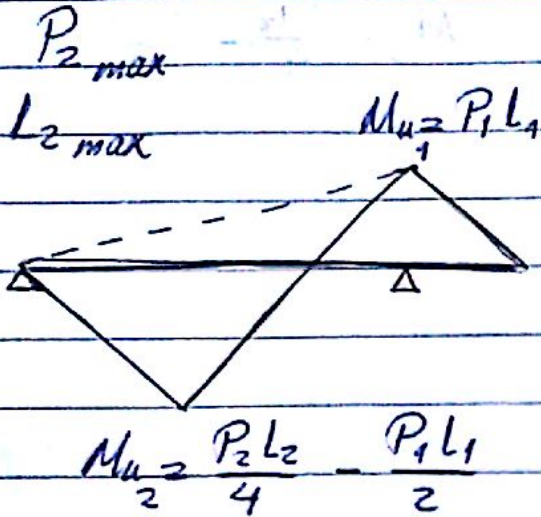 P₂ max
L₂ max
Mu₁ = P₁ L₁
Mu₂ = P₂ L₂ / 4 - P₁ L₁ / 2